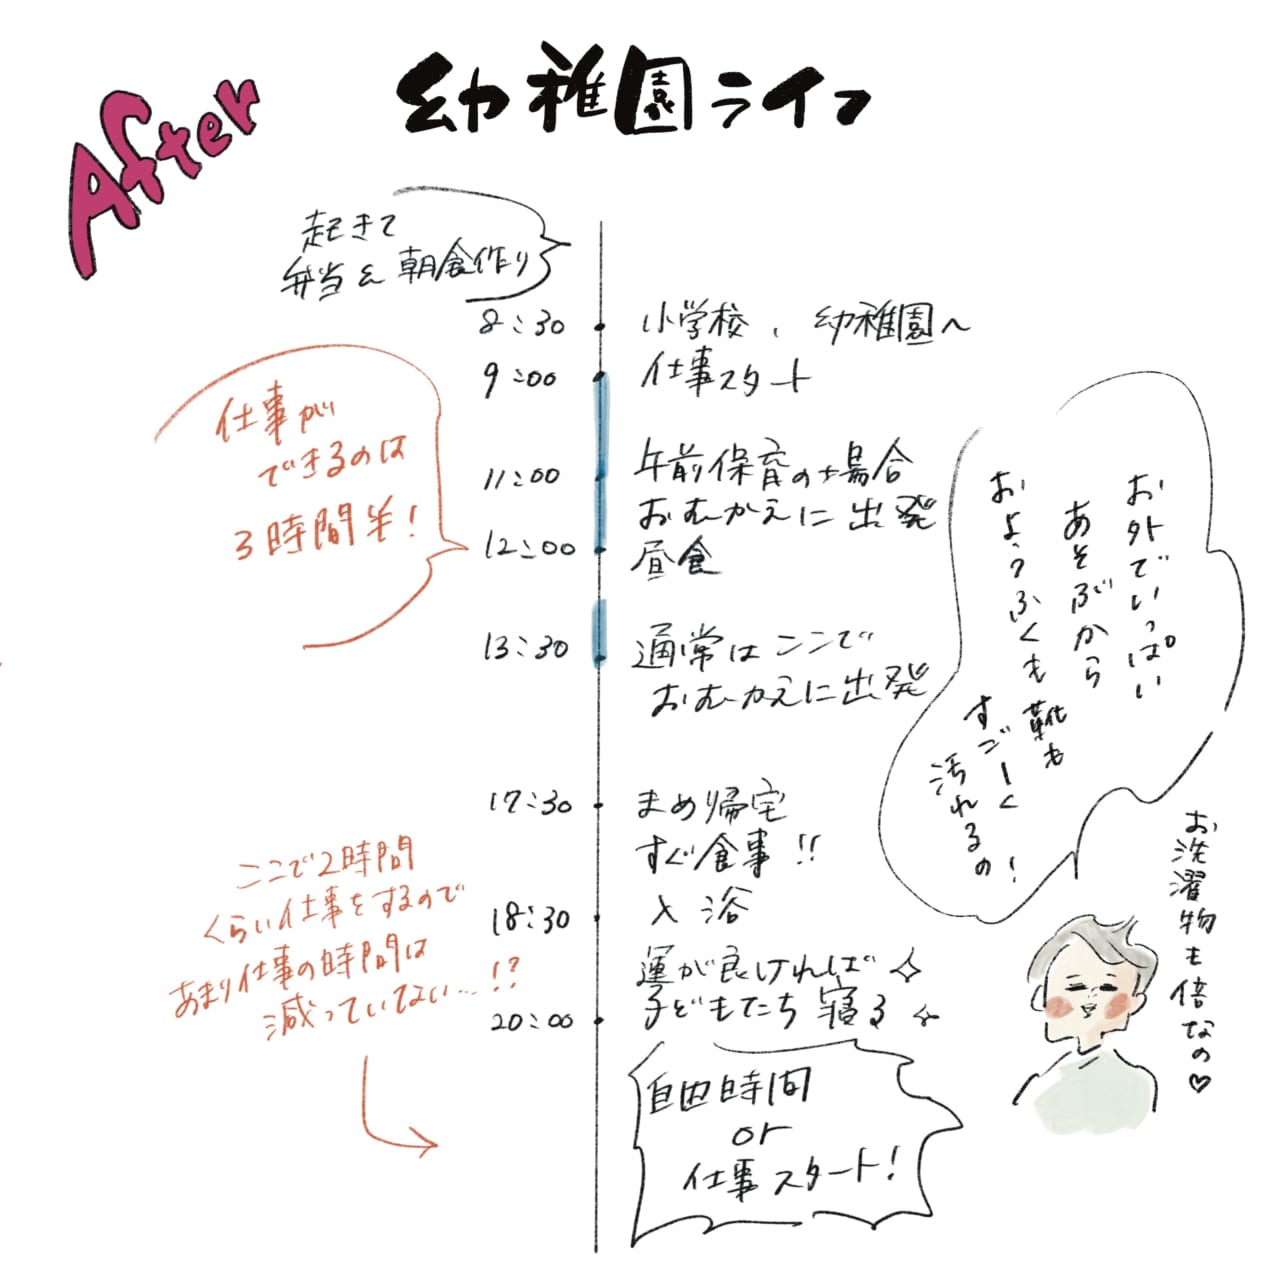 After
幼稚園ライフ
起きて
弁当&朝食作り
8:30 小学校、幼稚園へ
9:00 仕事スタート
仕事が
できるのは
3時間半!
11:00 午前保育の場合
おむかえに出発
12:00 昼食
13:30 通常はここで
おむかえに出発
お外でいっぱい
あそぶから
おようふくも靴も
すごーく
汚れるの!
お洗濯物も倍なの♡
17:30 まめり帰宅
すぐ食事!!
18:30 入浴
運が良ければ
20:00 子どもたち寝る
ここで2時間
くらい仕事をするので
あまり仕事の時間は
減っていてない…!?
自由時間
or
仕事スタート!